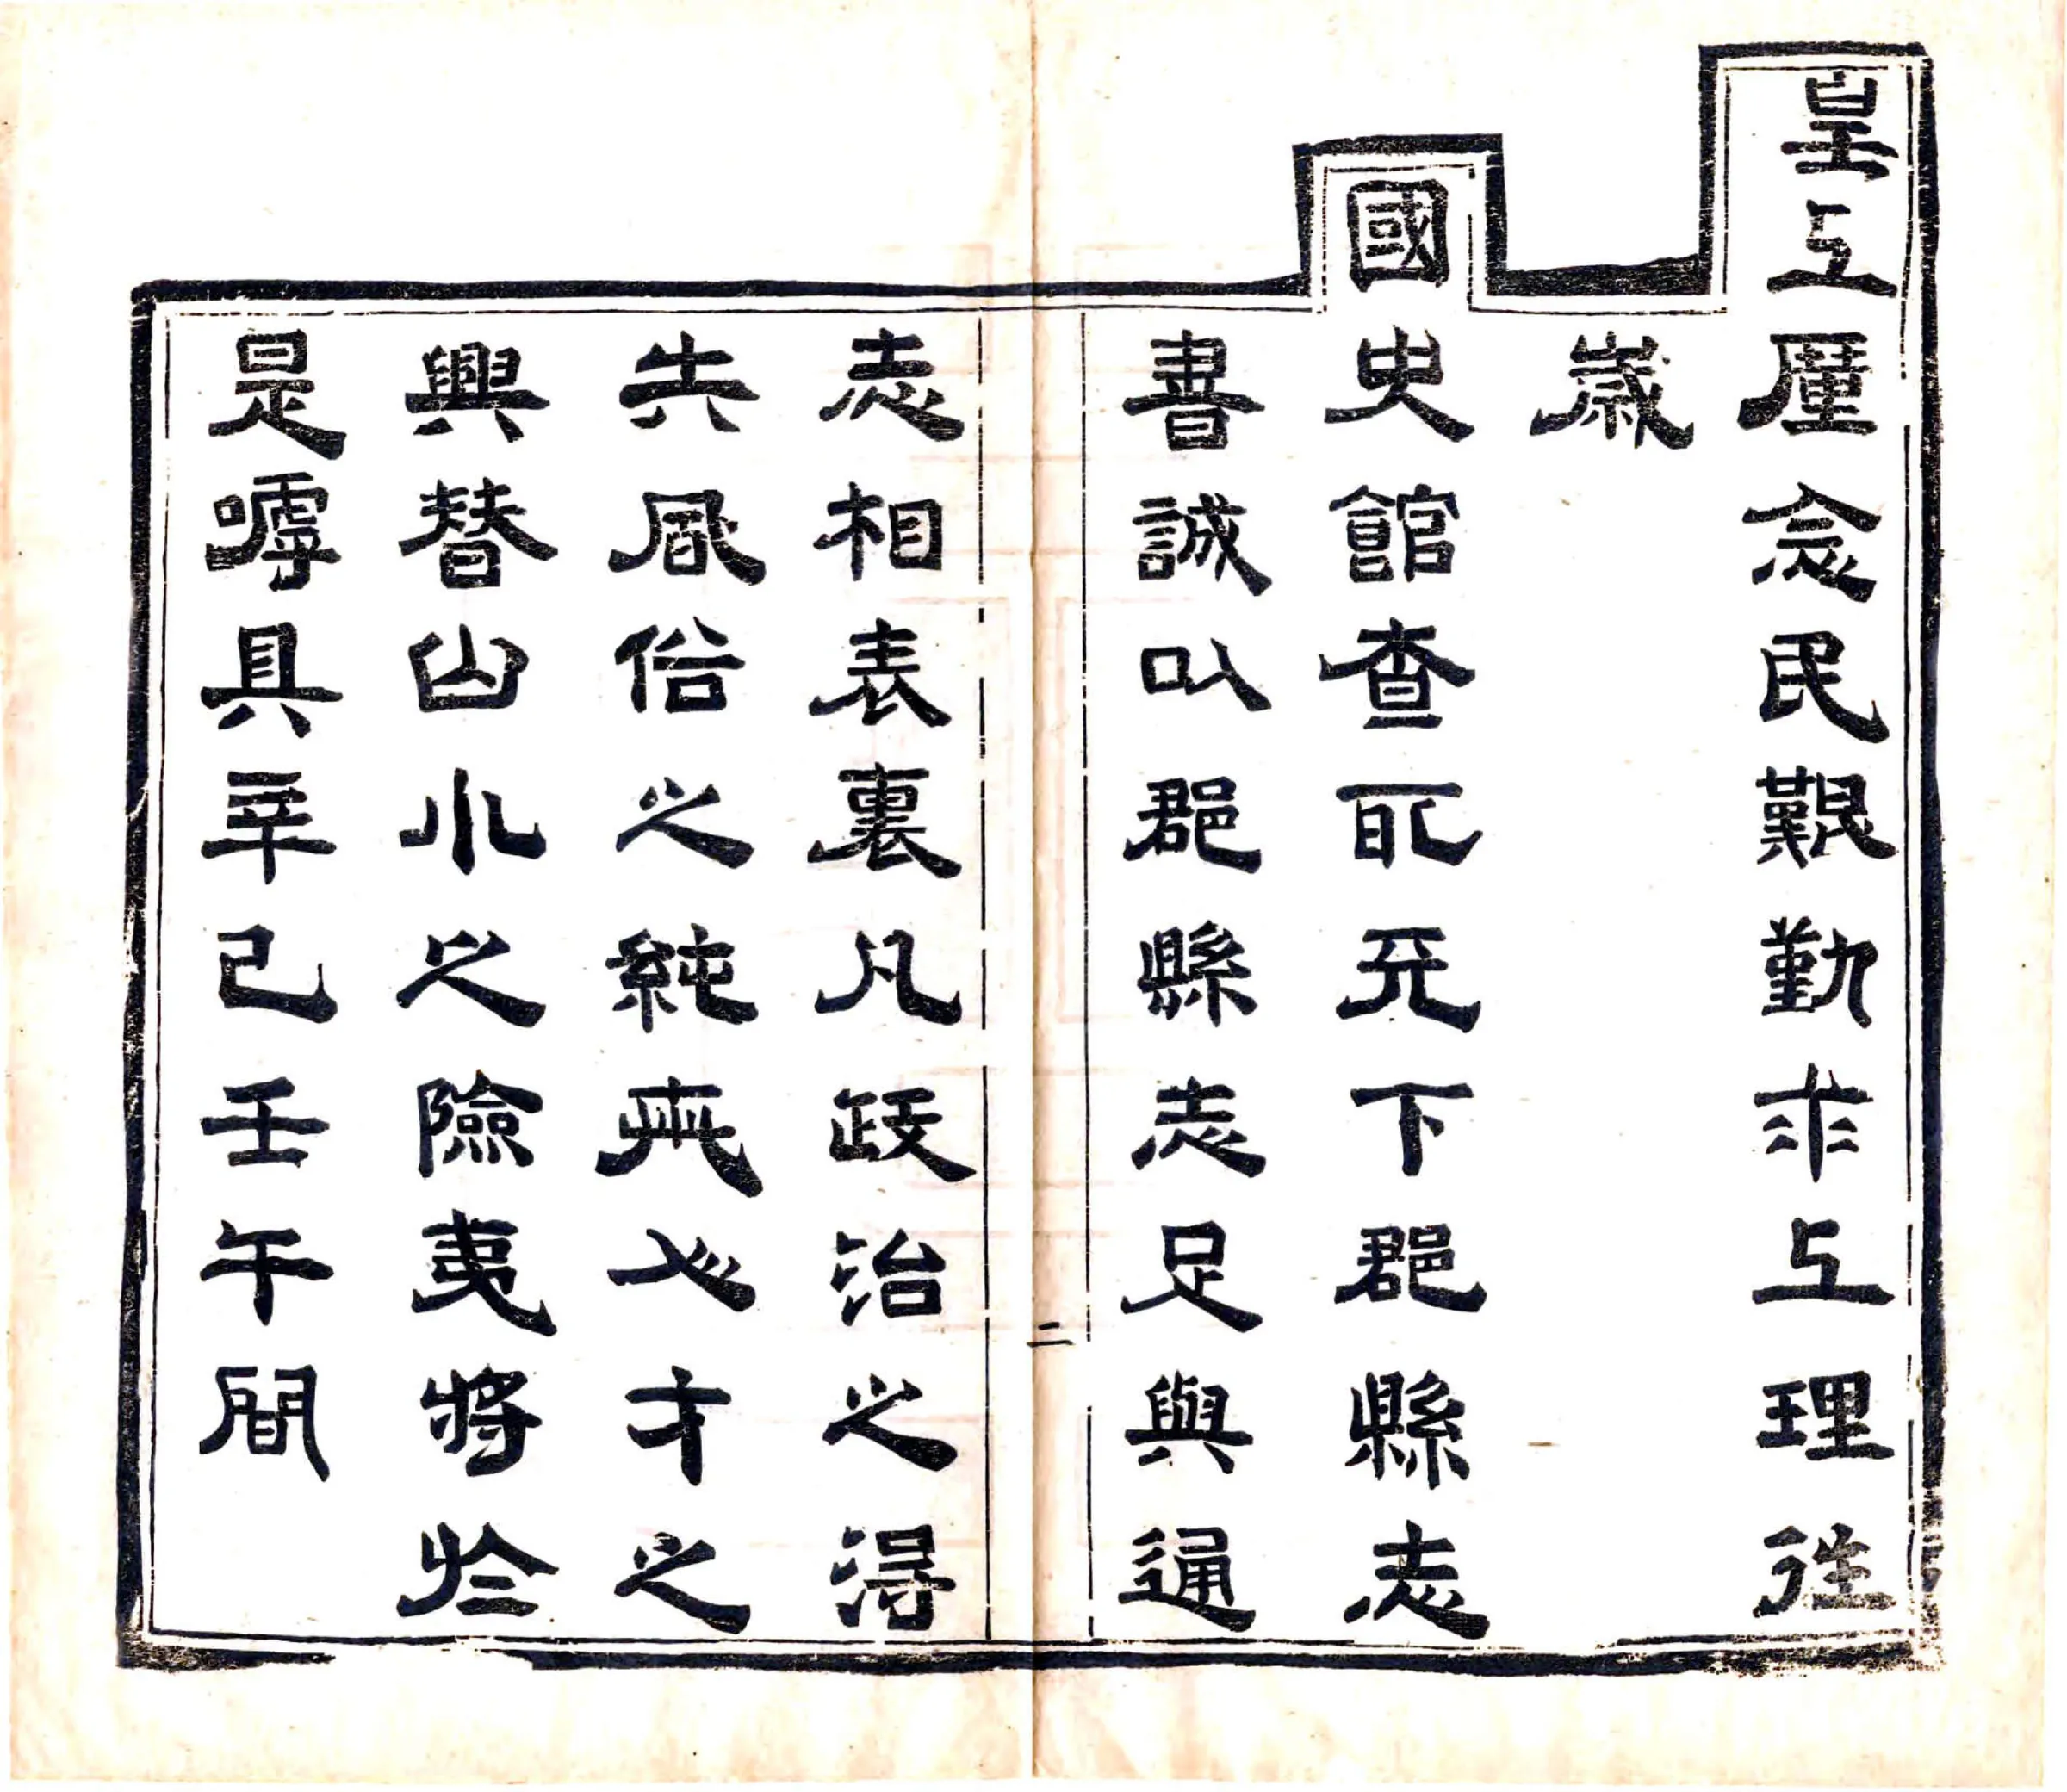 皇上廑念民艱勤求上理往
歲
國史館查取天下郡縣志
書誠以郡縣志足與通
二
志相表裏凡政治之得
失風俗之純人才之
興替山水之險夷將於
是嘑具辛巳壬午間